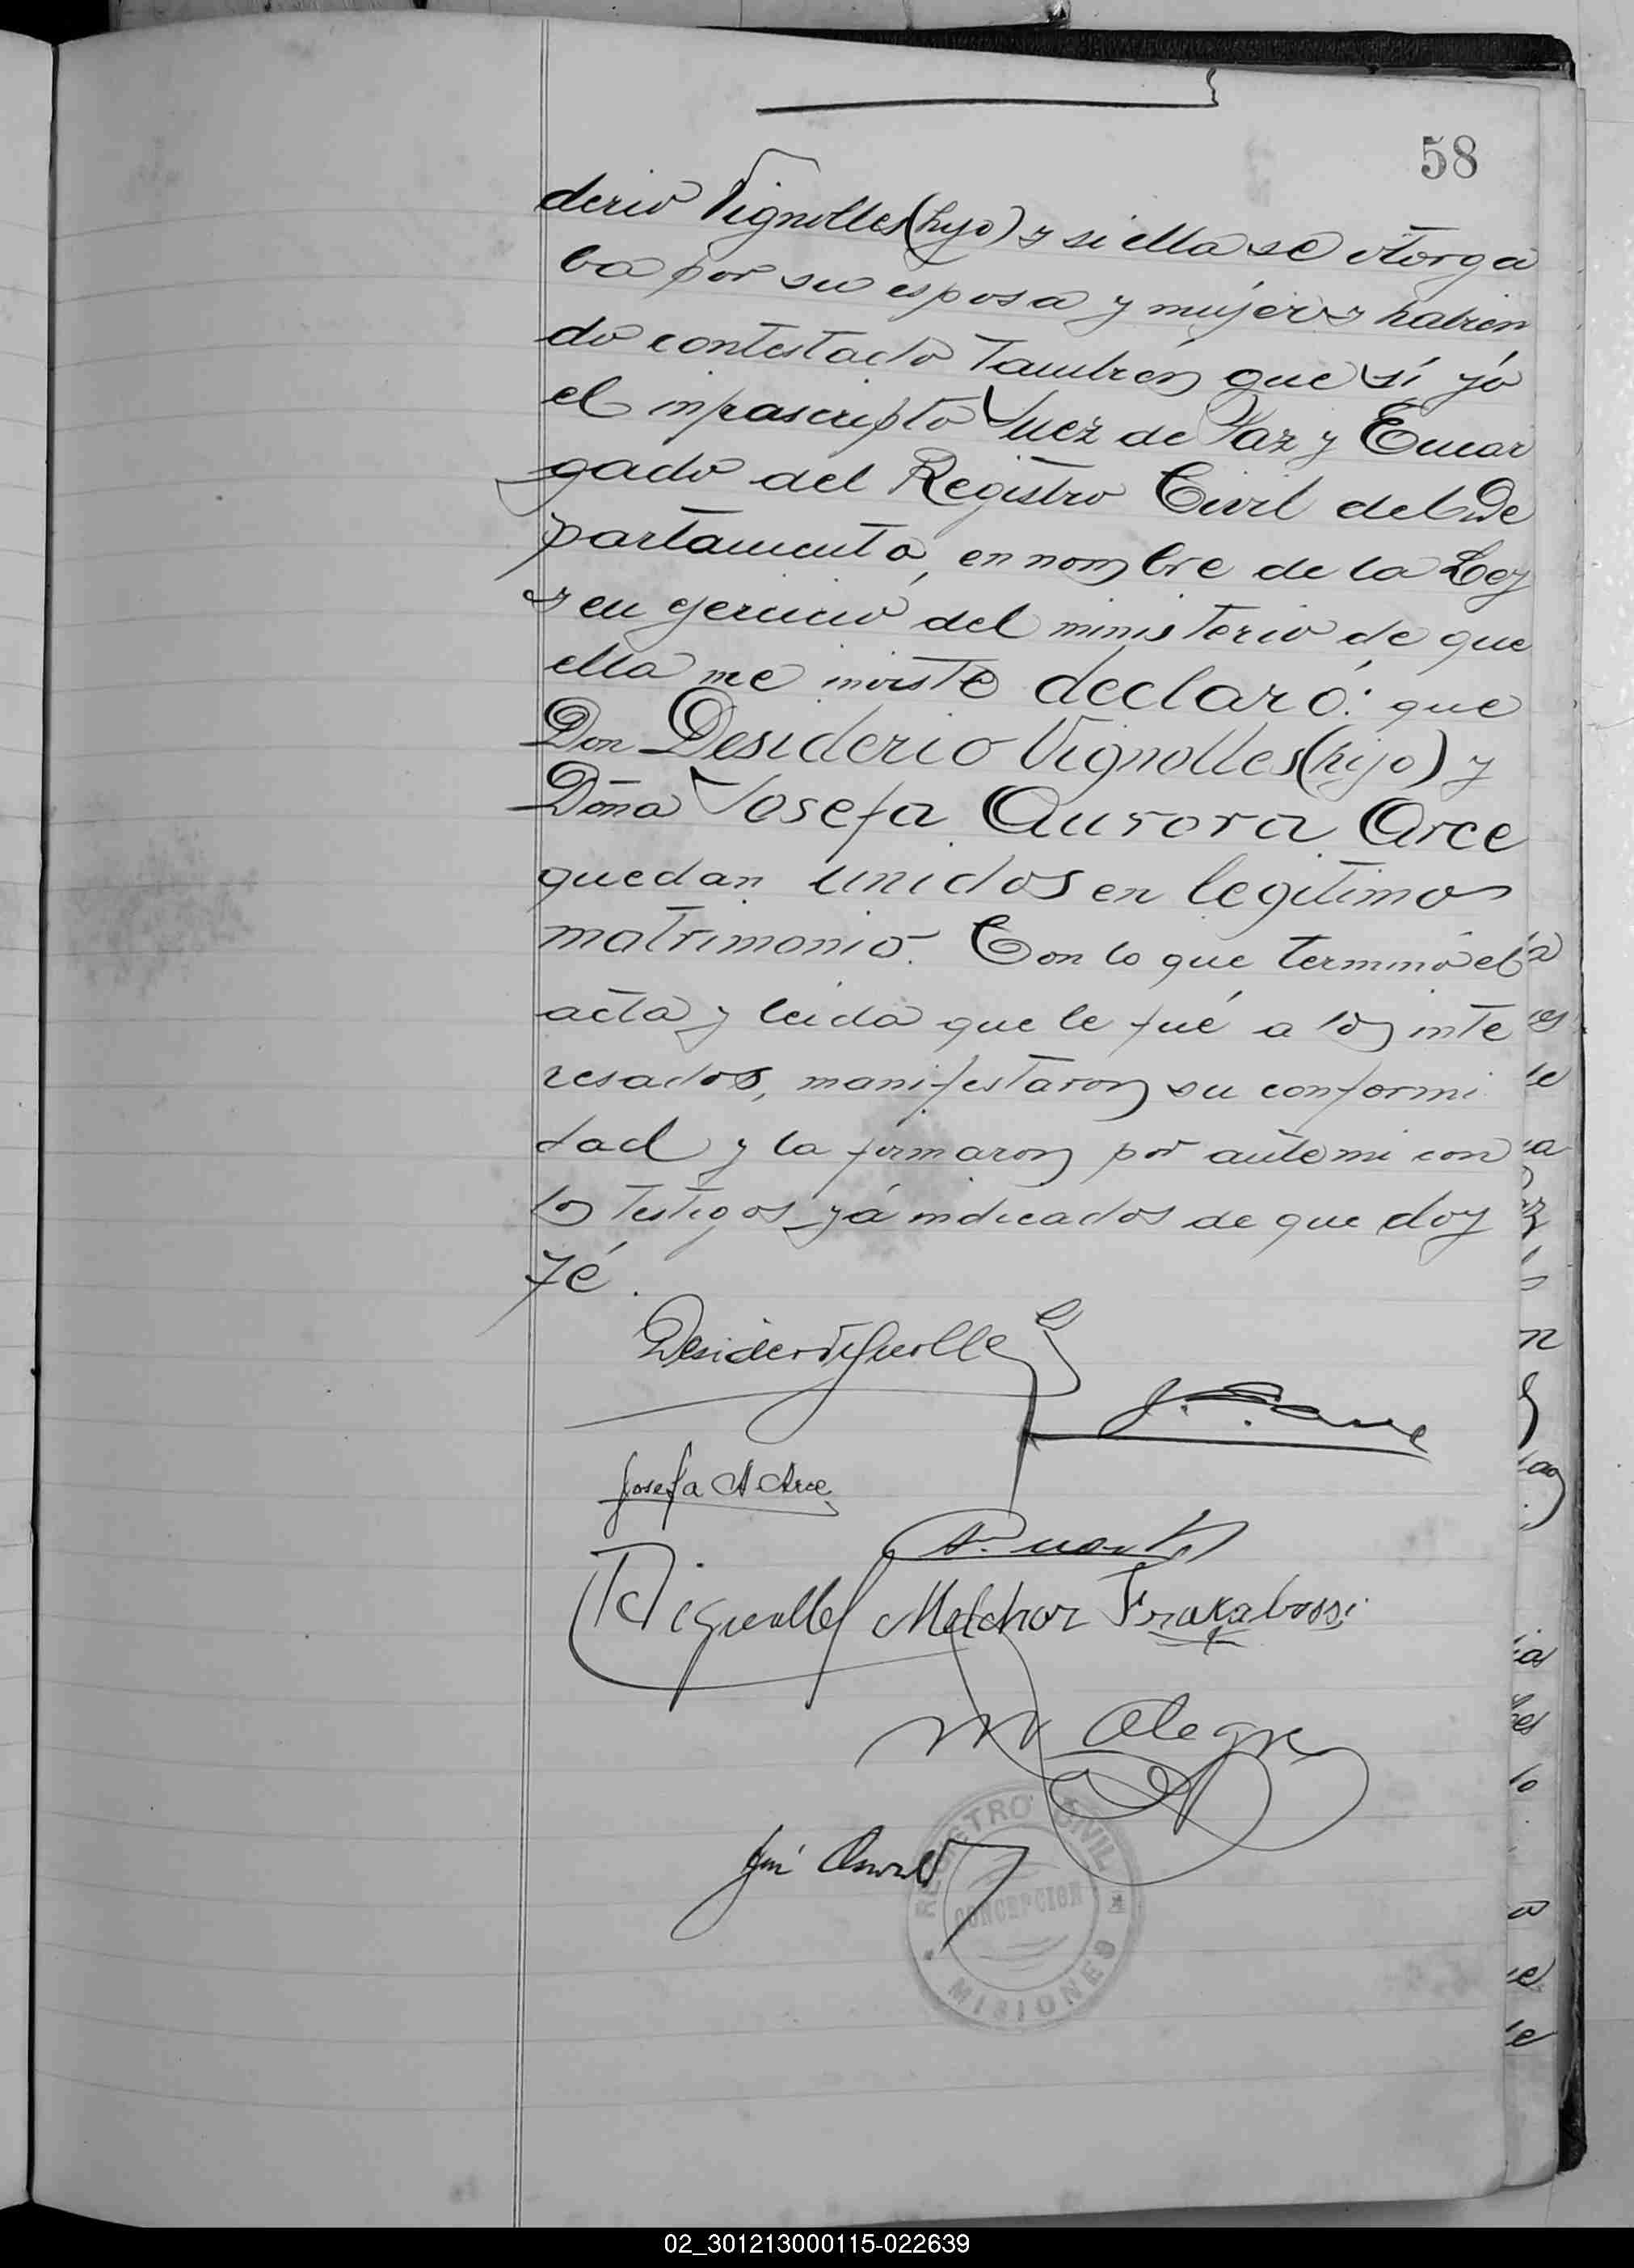 58
derio Vignolles (hijo) y si ella se otorga
ba por su esposa y mujer y habien
do contestado tambien que sí yó
el infrascripto Juez de Paz y Encar
gado del Registro Civil del De
partamento, en nombre de la Ley
y en gercicio del ministerio de que
ella me inviste declaró: que
Don Desiderio Vignolles (hijo) y
Doña Josefa Aurora Arce
quedan unidos en legitimo
matrimonio. Con lo que terminó el
acta y leida que le fué a los inte
resados, manifestaron su conformi
dad y la firmaron por ante mi con
los testigos yá indicados de que doy
fé.
Josefa A Arce
Melchor
M Alegre
REGISTRO CIVIL
CONCEPCION
MISIONES
02_301213000115-022639